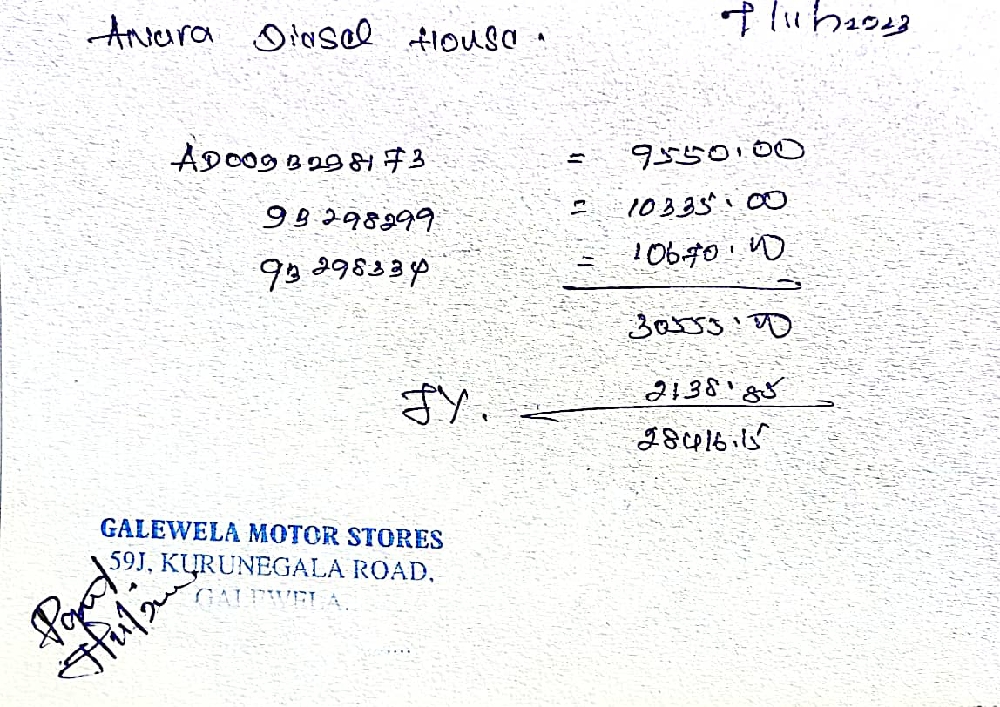 Anura Diesel House.
7/11/2023
AD0093298173 = 9550.00
93298299 = 10335.00
93298334 = 10670.00
30555.00
7%. 2138.85
28416.15
GALEWELA MOTOR STORES
59J, KURUNEGALA ROAD,
GALEWELA.